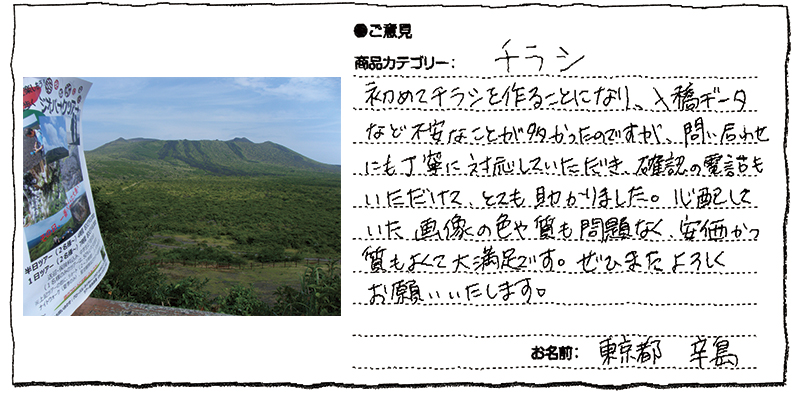 ●ご意見
商品カテゴリー： チラシ
初めてチラシを作ることになり、入稿データ
など不安なことが多かったのですが、問い合わせ
にも丁寧に対応していただき、確認の電話も
いただけて、とても助かりました。心配して
いた画像の色や質も問題なく、安価かつ
質もよくて大満足です。ぜひまたよろしく
お願いいたします。
お名前： 東京都 辛島
半日ツアー（2名様～
1日ツアー（2名様～